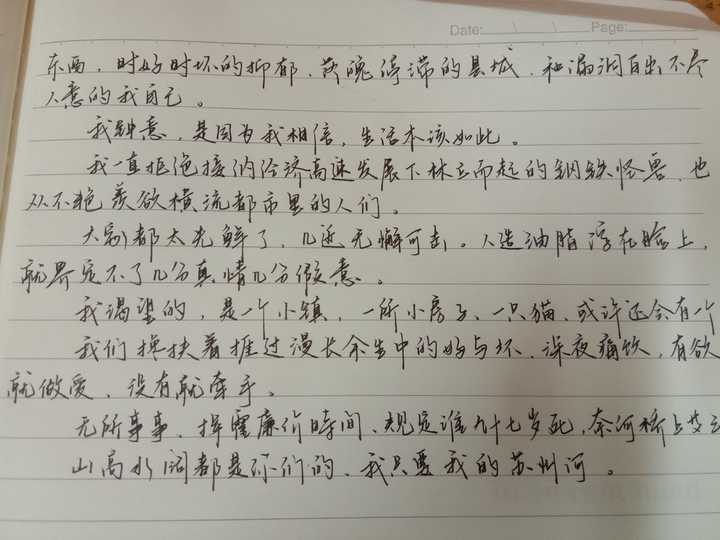 Date: \ \ Page:
东西，时好时坏的抑郁，颓唐停滞的县城，和漏洞百出不尽
人意的我自己。
我钟意，是因为我相信，生活本该如此。
我一直拒绝接纳经济高速发展下林立而起的钢铁怪兽，也
从不艳羡欲横流都市里的人们。
大家都太光鲜了，几近无懈可击。人造油脂浮在脸上，
就界定不了几分真情几分假意。
我渴望的，是一个小镇，一所小房子，一只猫，或许还会有一个
我们搀扶着捱过漫长余生中的好与坏，深夜痛饮，有欲
就做爱，没有就牵手。
无所事事，挥霍廉价时间，规定谁九十七岁死，奈何桥上
山高水阔都是你们的，我只要我的苏州河。